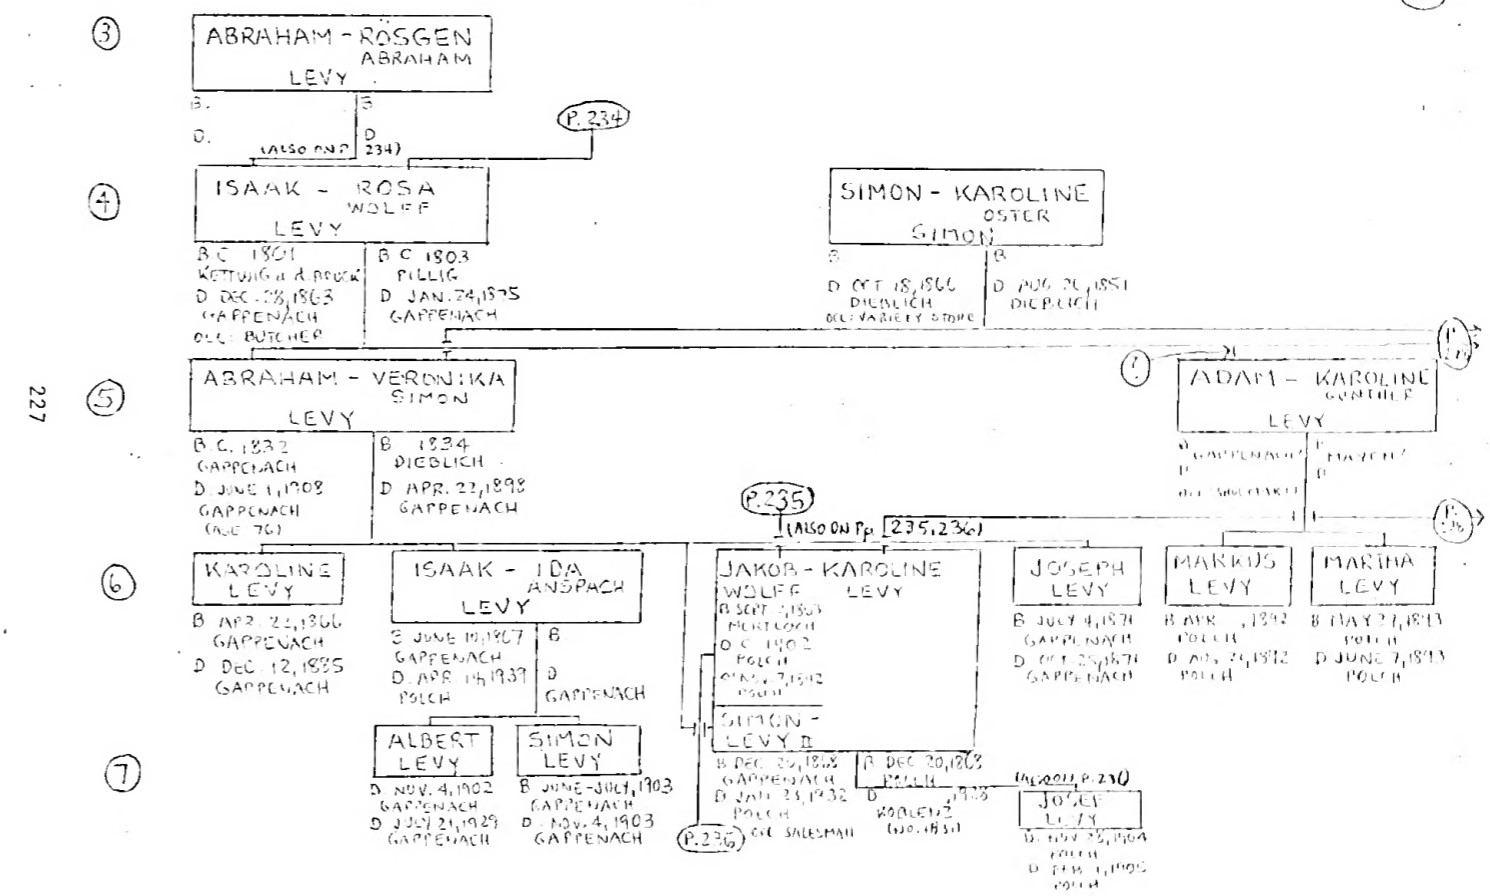 3
ABRAHAM - RÖSGEN
ABRAHAM
LEVY
B.
B
D.
D
(ALSO ON P. 234)
P. 234
4
ISAAK - ROSA
WOLFF
LEVY
B.C. 1801
KETTWIG a d. BRUCK
D DEC. 28, 1863
GAPPENACH
OCC: BUTCHER
B C 1803
PILLIG
D JAN. 24, 1875
GAPPENACH
SIMON - KAROLINE
OSTER
SIMON
B
D OCT 18, 1866
DIEBLICH
OCC: VARIETY STORE
B
D AUG 26, 1851
DIEBLICH
227
5
ABRAHAM - VERONIKA
SIMON
LEVY
B.C. 1832
GAPPENACH
D. JUNE 1, 1908
GAPPENACH
(AGE 76)
B 1834
DIEBLICH
D APR. 22, 1898
GAPPENACH
ADAM - KAROLINE
GUNTHER
LEVY
GAPPENACH?
D
MAYEN?
D
P. 235
(ALSO ON Pp. 235, 236)
6
KAROLINE
LEVY
B APR. 22, 1866
GAPPENACH
D DEC. 12, 1885
GAPPENACH
ISAAK - IDA
ANSPACH
LEVY
B JUNE 1867
GAPPENACH
D. APR 14, 1939
POLCH
B
D
GAPPENACH
JAKOB - KAROLINE
WOLFF LEVY
B SEPT. 1863
MERTLOCH
D C 1902
POLCH
NOV. 7, 1892
POLCH
SIMON -
LEVY II
B DEC 20, 1868
GAPPENACH
D JAN 23, 1932
POLCH
OCC SALESMAN
B DEC 20, 1868
POLCH
D , 1938
KOBLENZ
JOSEPH
LEVY
B JULY 4, 1871
GAPPENACH
D OCT. 25, 1871
GAPPENACH
MARKUS
LEVY
B APR , 1892
POLCH
D AUG 24, 1892
POLCH
MARTHA
LEVY
B MAY 27, 1893
POLCH
D JUNE 7, 1893
POLCH
7
ALBERT
LEVY
B NOV. 4, 1902
GAPPENACH
D JULY 21, 1929
GAPPENACH
SIMON
LEVY
B JUNE-JULY, 1903
GAPPENACH
D. NOV. 4, 1903
GAPPENACH
P. 236
(ALSO ON P. 236)
JOSEF
LEVY
NOV 28, 1904
POLCH
D FEB 1, 1905
POLCH